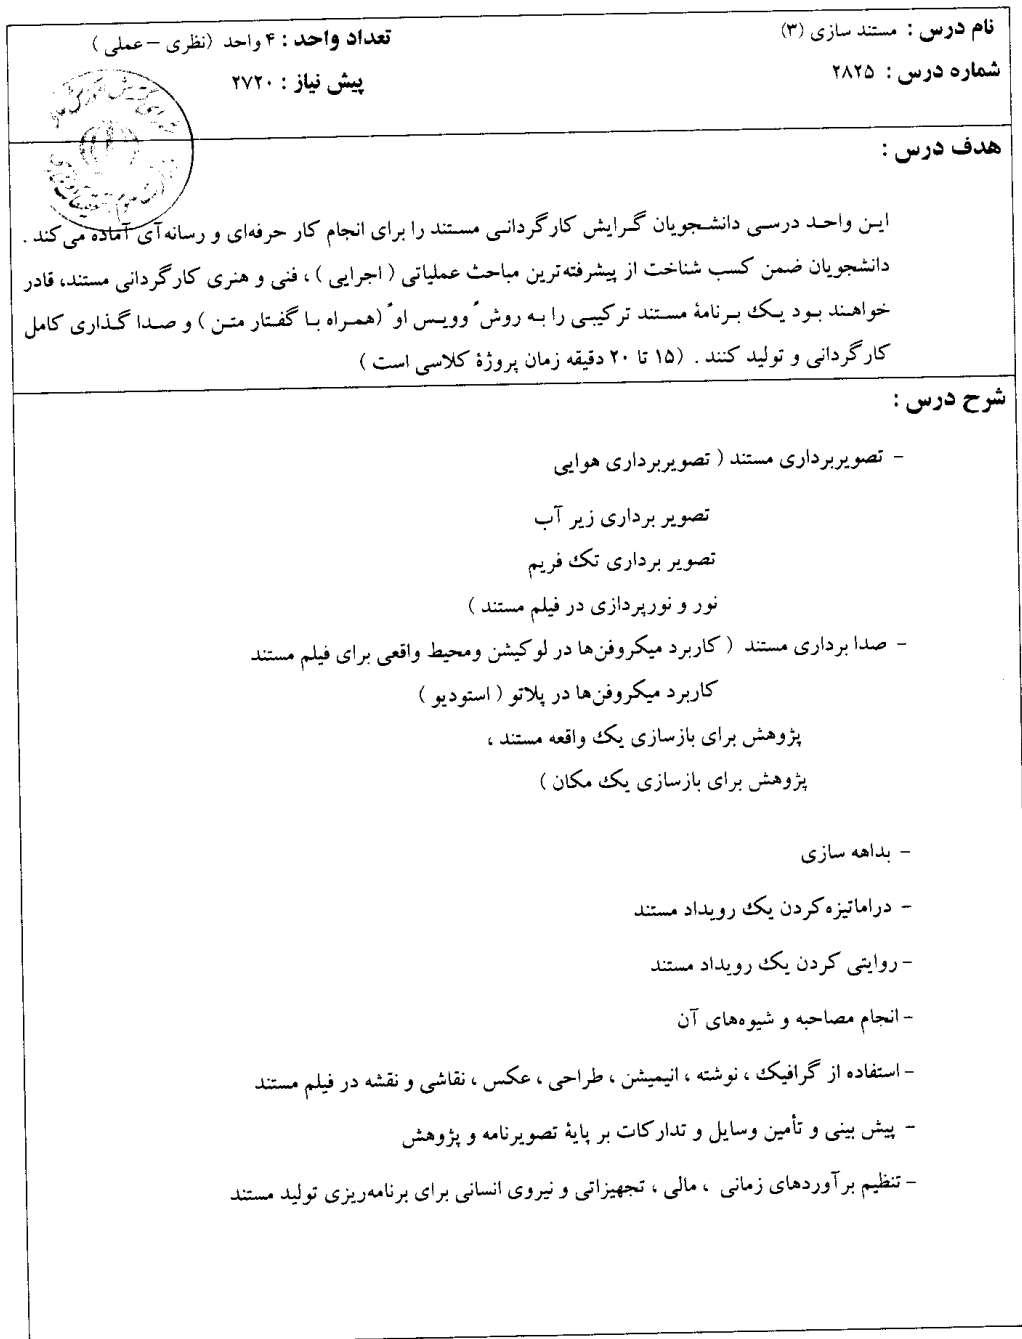 نام درس : مستند سازی (۳)
تعداد واحد : ۴ واحد (نظری – عملی )
شماره درس : ۲۸۲۵
پیش نیاز : ۲۷۲۰
هدف درس :
این واحد درسی دانشجویان گرایش کارگردانی مستند را برای انجام کار حرفه‌ای و رسانه‌آی آماده می‌کند .
دانشجویان ضمن کسب شناخت از پیشرفته‌ترین مباحث عملیاتی ( اجرایی ) ، فنی و هنری کارگردانی مستند، قادر
خواهند بود یک برنامهٔ مستند ترکیبی را به روش ً وویس او ً (همراه با گفتار متن ) و صدا گذاری کامل
کارگردانی و تولید کنند . (۱۵ تا ۲۰ دقیقه زمان پروژهٔ کلاسی است )
شرح درس :
- تصویربرداری مستند ( تصویربرداری هوایی
تصویر برداری زیر آب
تصویر برداری تک فریم
نور و نورپردازی در فیلم مستند )
- صدا برداری مستند ( کاربرد میکروفن‌ها در لوکیشن ومحیط واقعی برای فیلم مستند
کاربرد میکروفن‌ها در پلاتو ( استودیو )
پژوهش برای بازسازی یک واقعه مستند ،
پژوهش برای بازسازی یک مکان )
- بداهه سازی
- دراماتیزه‌کردن یک رویداد مستند
- روایتی کردن یک رویداد مستند
- انجام مصاحبه و شیوه‌های آن
- استفاده از گرافیک ، نوشته ، انیمیشن ، طراحی ، عکس ، نقاشی و نقشه در فیلم مستند
- پیش بینی و تأمین وسایل و تدارکات بر پایهٔ تصویرنامه و پژوهش
- تنظیم برآوردهای زمانی ، مالی ، تجهیزاتی و نیروی انسانی برای برنامه‌ریزی تولید مستند